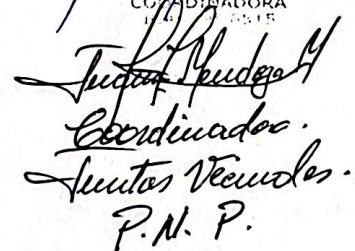 COORDINADORA
Mendoza M
Coordinadora.
Juntas Vecinales.
P. N. P.